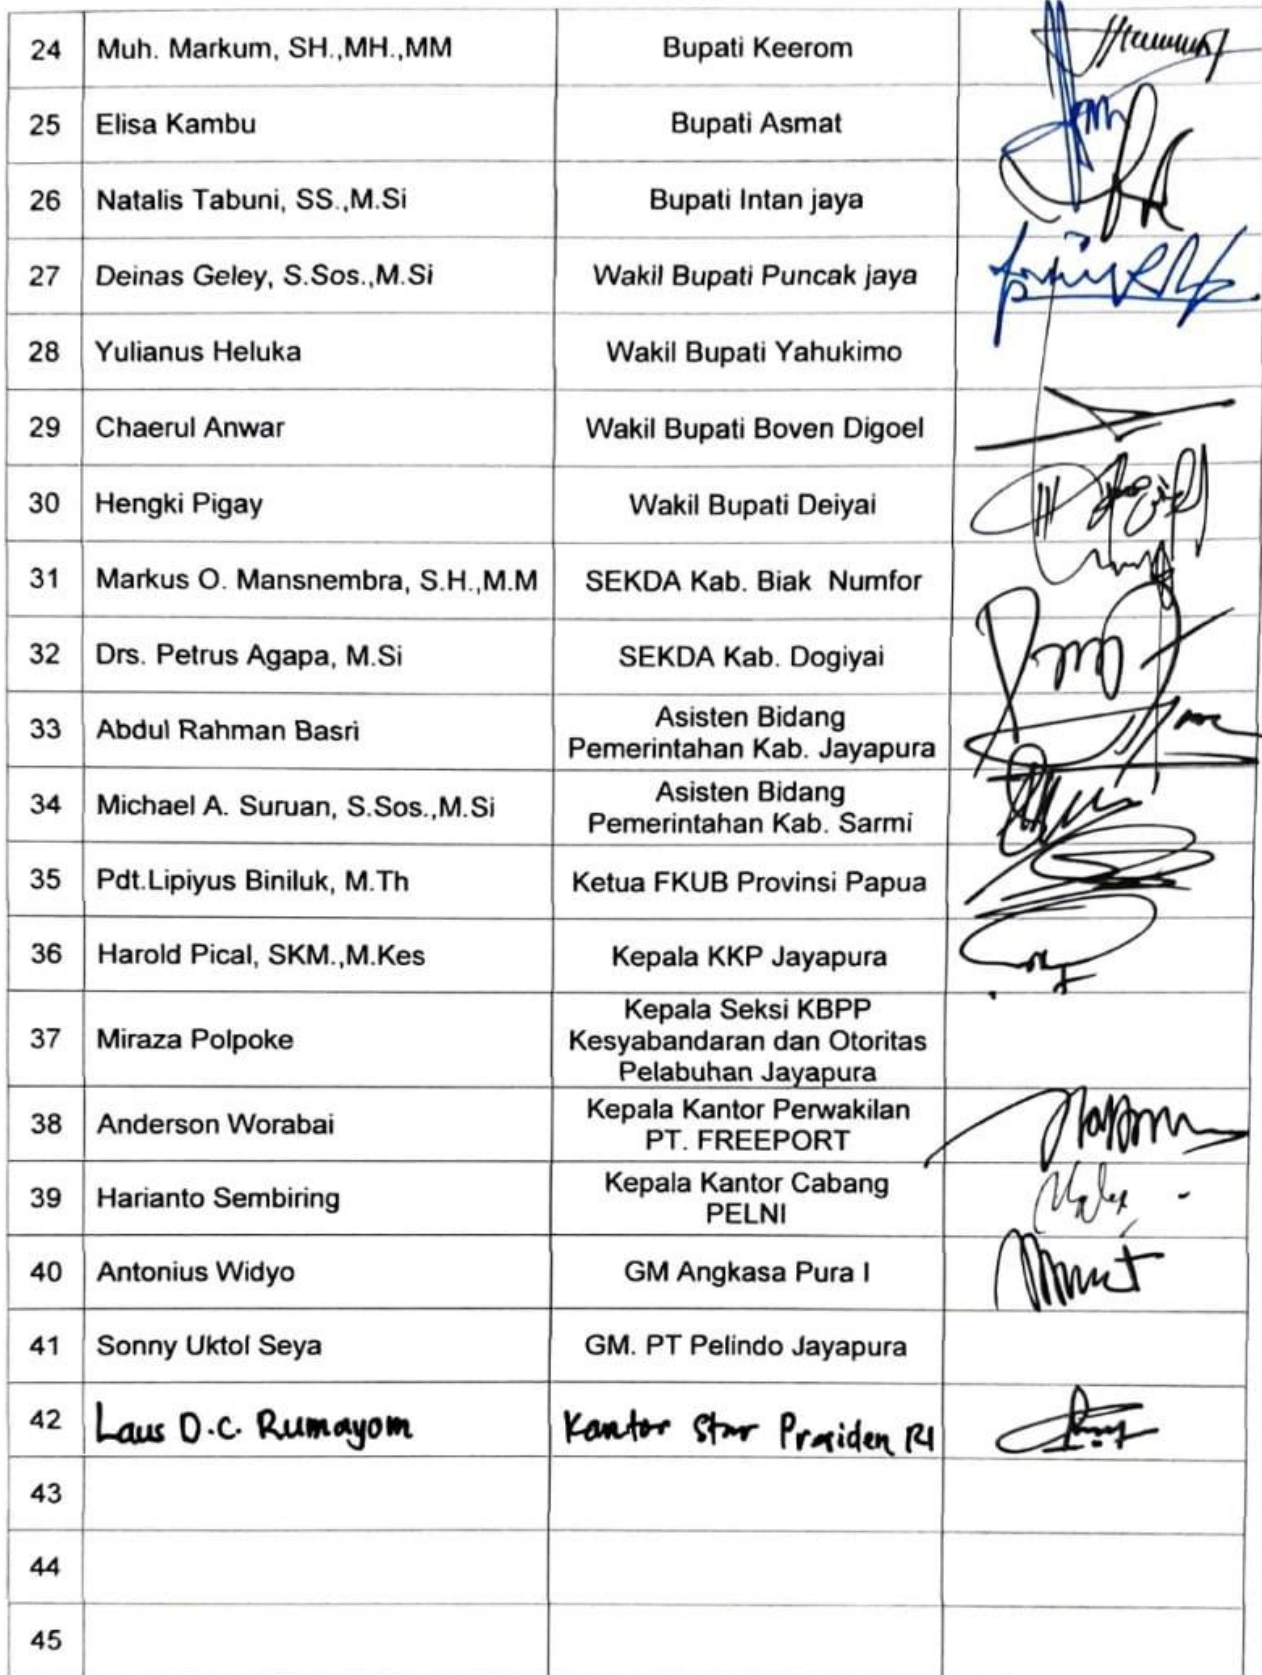 24 Muh. Markum, SH.,MH.,MM Bupati Keerom
25 Elisa Kambu Bupati Asmat
26 Natalis Tabuni, SS.,M.Si Bupati Intan jaya
27 Deinas Geley, S.Sos.,M.Si Wakil Bupati Puncak jaya
28 Yulianus Heluka Wakil Bupati Yahukimo
29 Chaerul Anwar Wakil Bupati Boven Digoel
30 Hengki Pigay Wakil Bupati Deiyai
31 Markus O. Mansnembra, S.H.,M.M SEKDA Kab. Biak Numfor
32 Drs. Petrus Agapa, M.Si SEKDA Kab. Dogiyai
33 Abdul Rahman Basri Asisten Bidang
Pemerintahan Kab. Jayapura
34 Michael A. Suruan, S.Sos.,M.Si Asisten Bidang
Pemerintahan Kab. Sarmi
35 Pdt.Lipiyus Biniluk, M.Th Ketua FKUB Provinsi Papua
36 Harold Pical, SKM.,M.Kes Kepala KKP Jayapura
37 Miraza Polpoke Kepala Seksi KBPP
Kesyabandaran dan Otoritas
Pelabuhan Jayapura
38 Anderson Worabai Kepala Kantor Perwakilan
PT. FREEPORT
39 Harianto Sembiring Kepala Kantor Cabang
PELNI
40 Antonius Widyo GM Angkasa Pura I
41 Sonny Uktol Seya GM. PT Pelindo Jayapura
42 Laus D.C. Rumayom Kantor Presiden RI
43
44
45